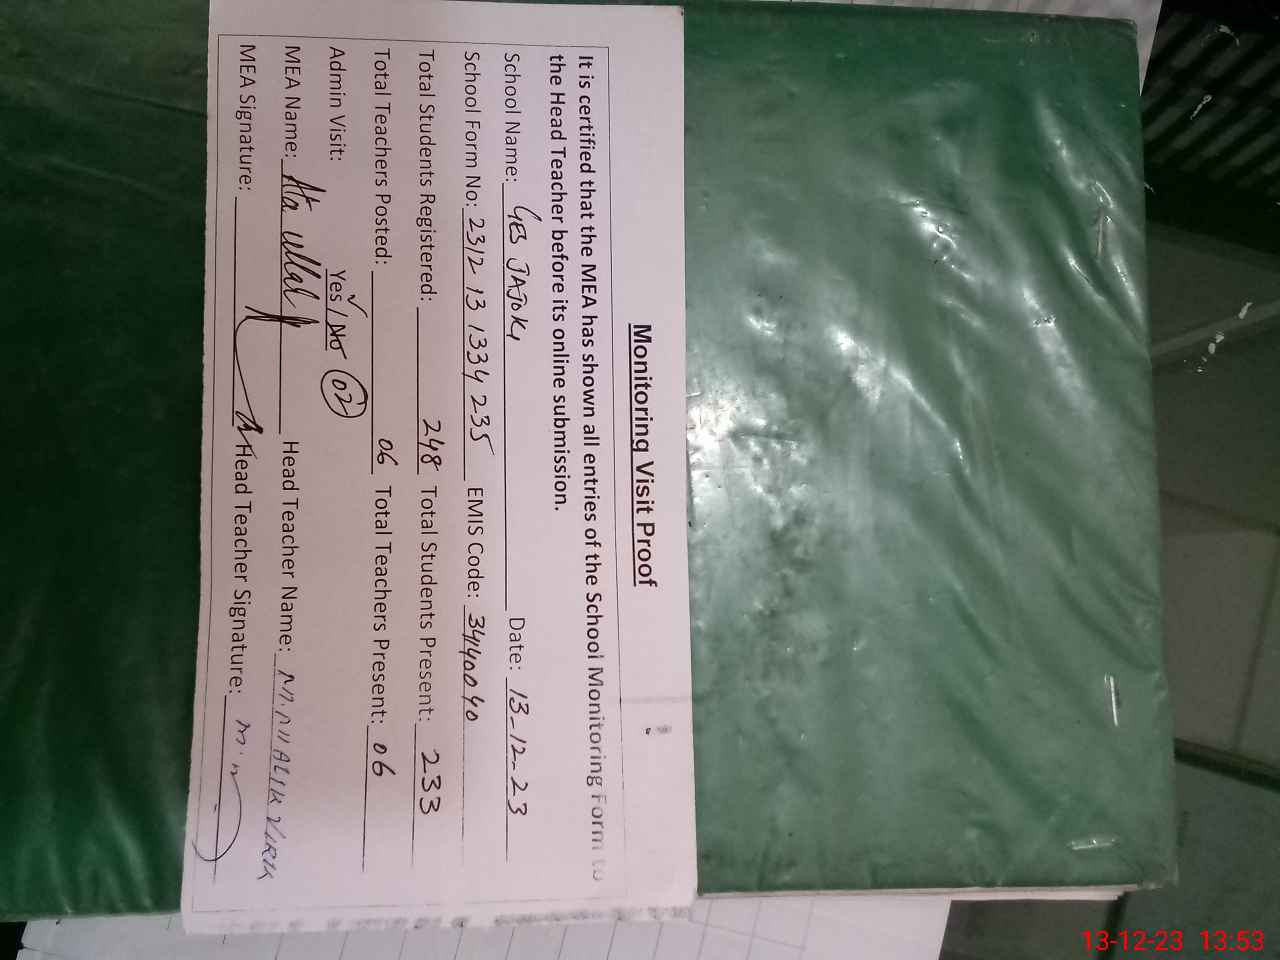 Monitoring Visit Proof
It is certified that the MEA has shown all entries of the School Monitoring Form to
the Head Teacher before its online submission.
School Name: GES JAJOKI Date: 13-12-23
School Form No: 2312 13 1334 235 EMIS Code: 34140040
Total Students Registered: 248 Total Students Present: 233
Total Teachers Posted: 06 Total Teachers Present: 06
Admin Visit: Yes / No 02
MEA Name: Ata ullah Head Teacher Name: VIRK
MEA Signature: Head Teacher Signature:
13-12-23 13:53